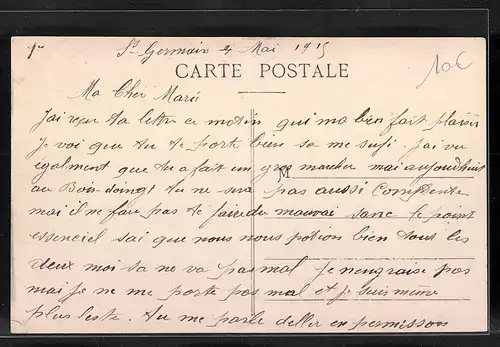 1º St Germain 4 Mai 1915
CARTE POSTALE
10€
Ma Cher Marie
J'ai reçu ta lettre ce matin qui ma bien fait plaisir
Je voi que tu te porte bien sa me sufi. J'ai vu
également que tu a fait un gros marcher mai aujourdhuit
au tu ne sera pas aussi contente
mai il ne fau pas te faire du mauvai sanc le point
essenciel sai que nous nous potion bien tous les
deux moi sa ne va pas mal je nengraise pas
mai je ne me porte pas mal et je suis même
plus leste. tu me parle daller en permisson
M